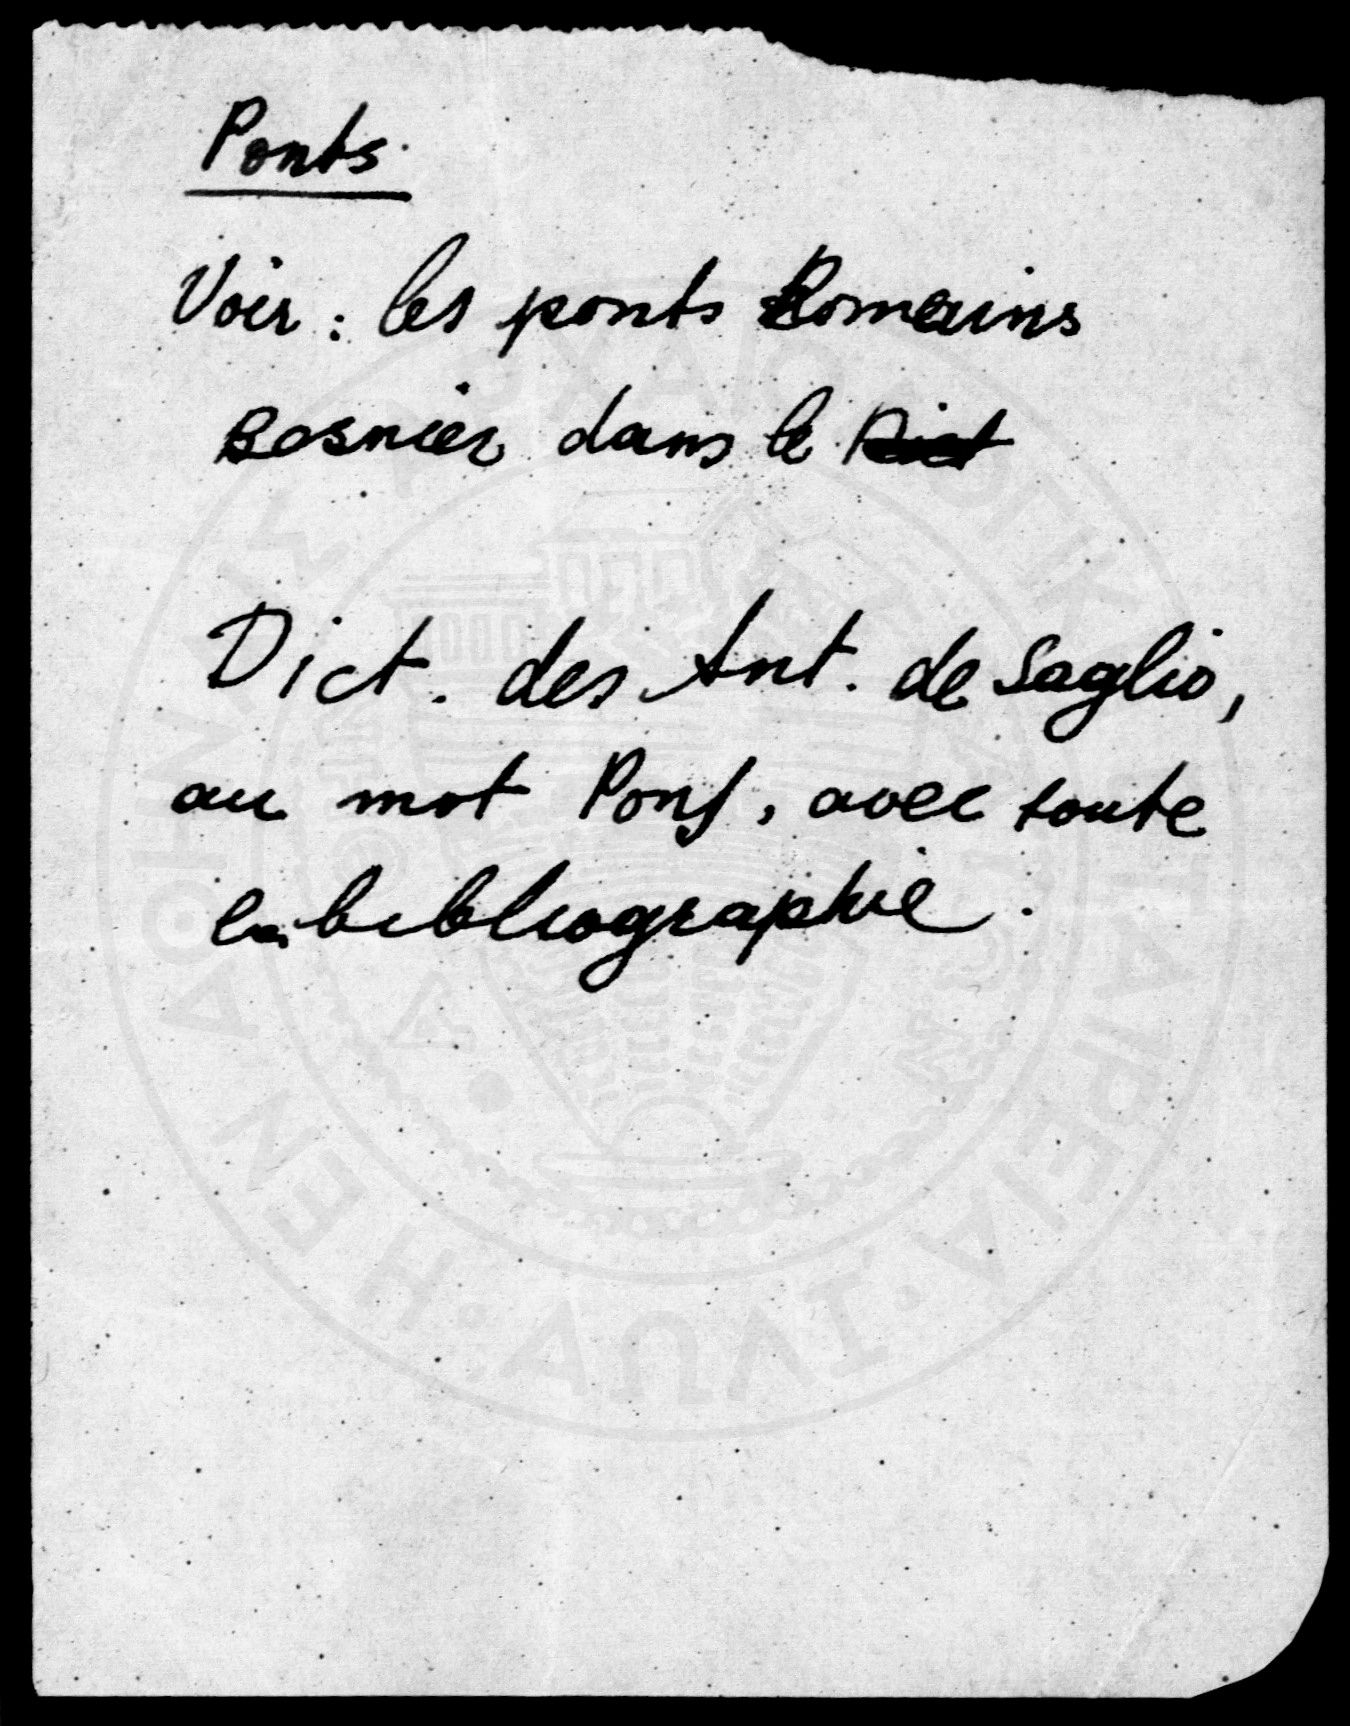 Ponts.
Voir : les ponts Romains
Besnier dans le Dict
Dict. des Ant. de Saglio,
au mot Pons, avec toute
la bibliographie.